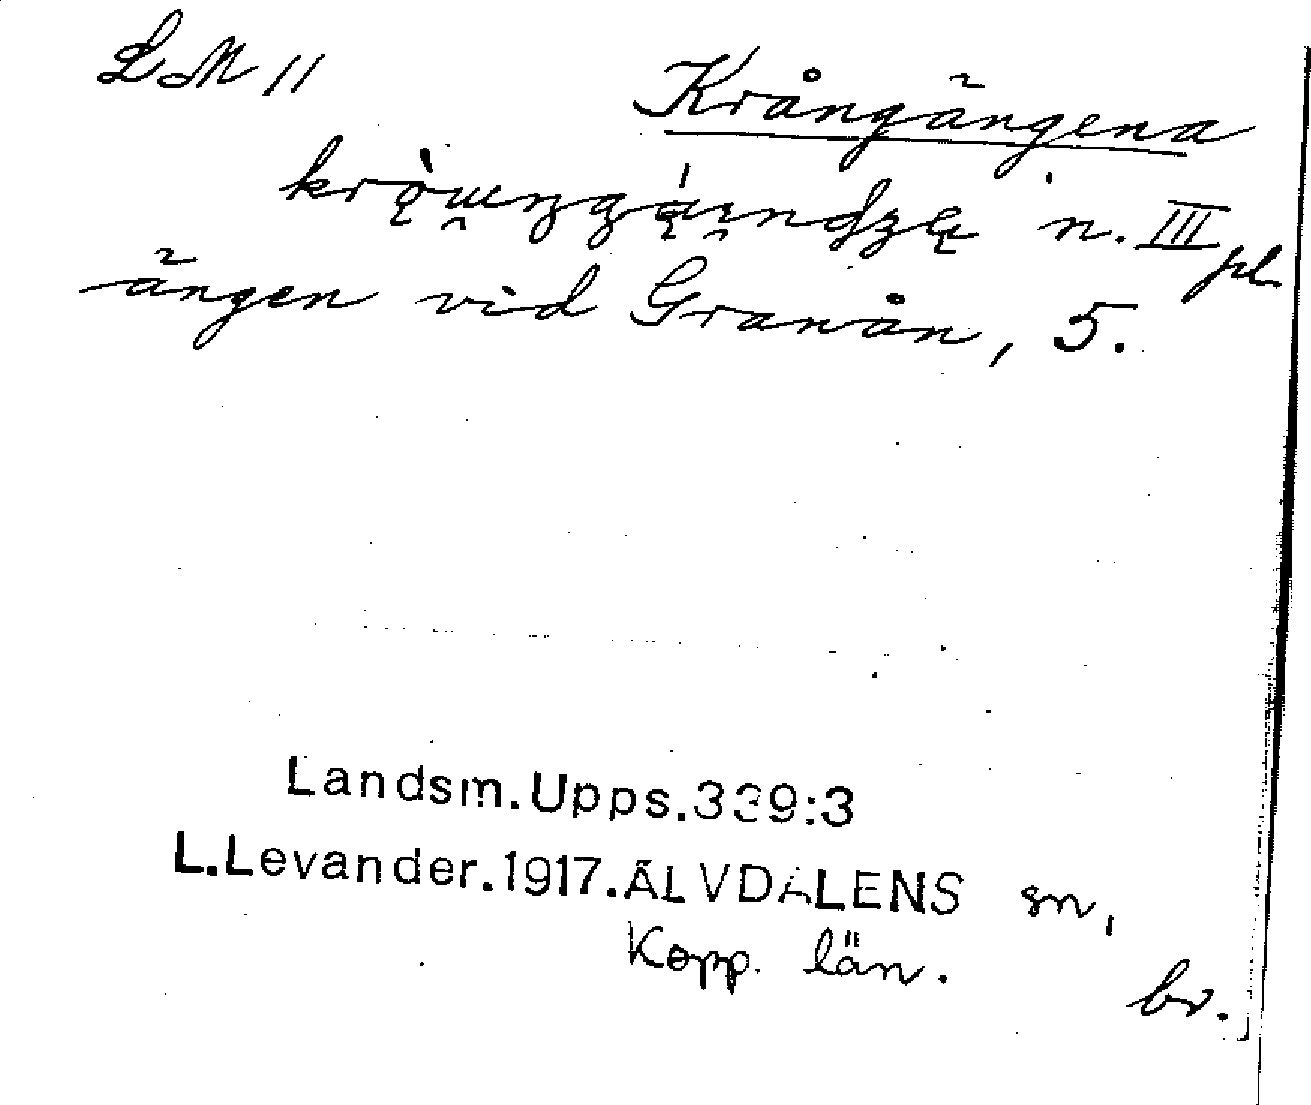 LM 11
Krångängena
n. III pl.
ängen vid Granån, 5.
Landsm.Upps.339:3
L.Levander.1917.ÄLVDALENS sn,
Kopp. län.
br.